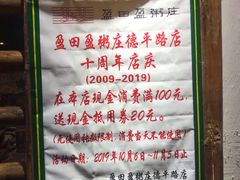 盈田盈粥庄
盈田盈粥庄德平路店
十周年店庆
(2009-2019)
在本店现金消费满100元,
送现金抵用券20元。
(无使用张数限制,消费当天不能使用)
活动日期:2019年10月6日~11月5日止
盈田盈粥庄德平路店